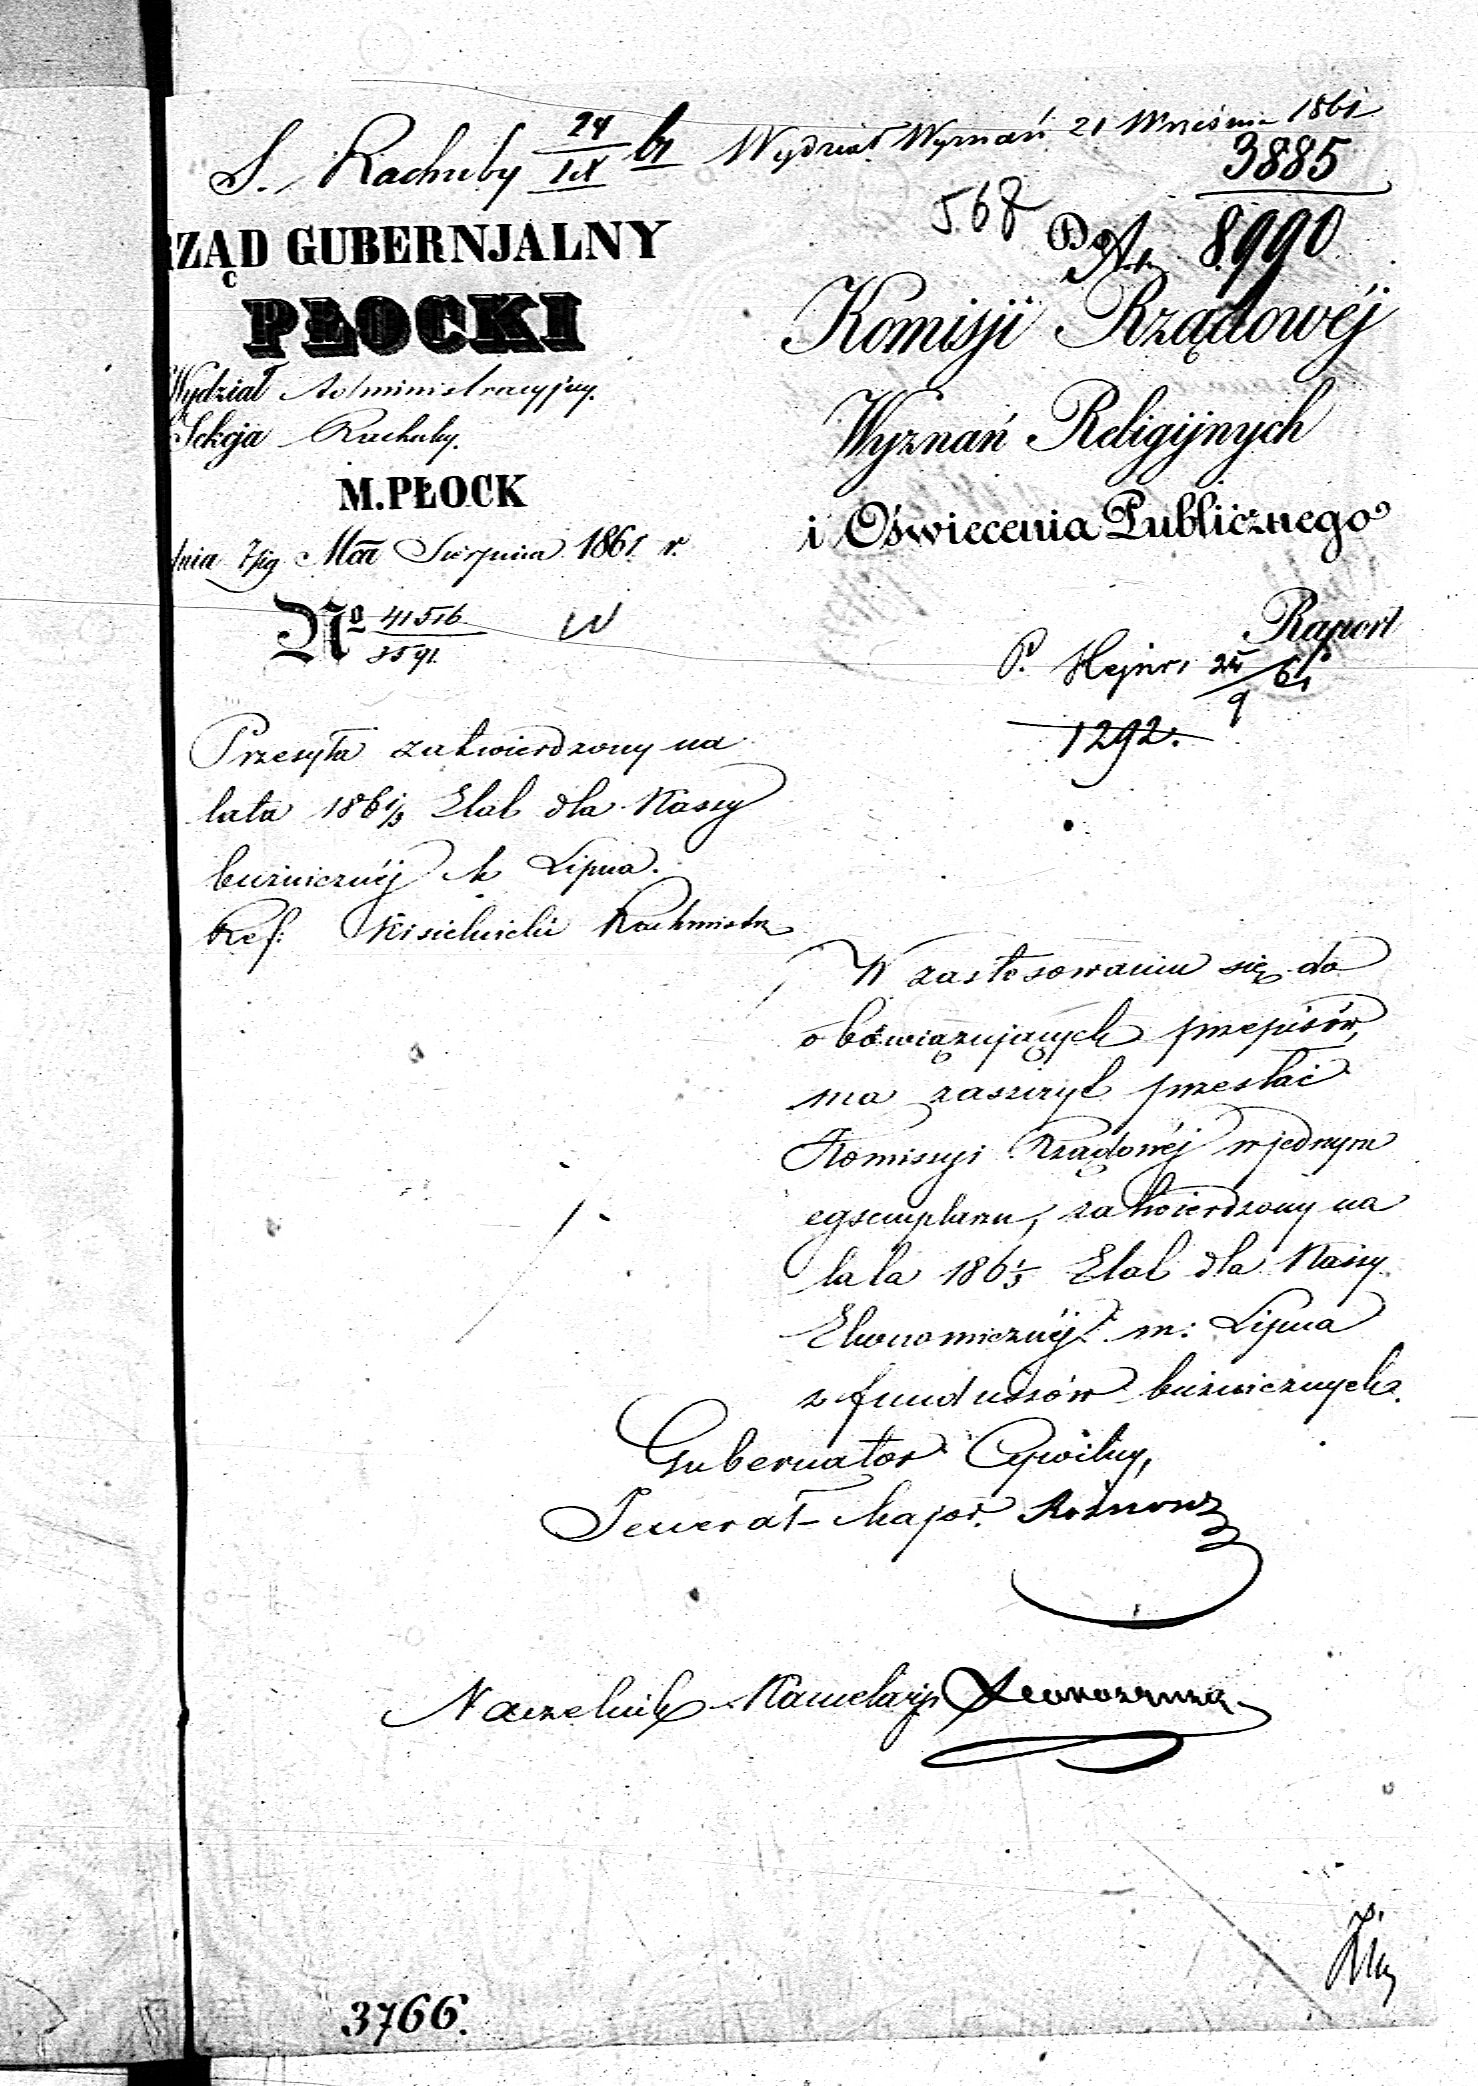 S. Rachuby 24/IX 61 Wydział Wyznań 21 Wrześnie 1861
3885
568
RZĄD GUBERNJALNY
PŁOCKI
Wydział Administracyjny.
Sekcja Rachuby.
M. PŁOCK
dnia 7/19 Mca Sierpnia 1861 r.
No 41516/3591.
Do
8990
Komisji Rządowéj
Wyznań Religijnych
i Oświecenia Publicznego
Raport
P. 24/9 61
1292.
Przesyła zatwierdzony na
lata 1861/3 Etat dla Kassy
bużnicznéj M Lipna.
Ref: Kisielnicki Rachmistrz
W zastosowaniu się do
obowiązujących przepisów,
ma zaszczyt przesłać
Komissyi Rządowéj w jednym
egzemplarzu, zatwierdzony na
lata 1861/3 Etat dla Kassy
Ekonomicznéj m: Lipna
z funduszów bużnicznych.
Gubernator Cywilny,
Jenerał-Major
Naczelnik Kancelarji
3766.